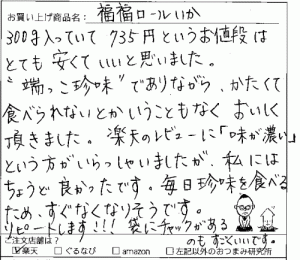 お買い上げ商品名：福福ロールいか
300g入っていて735円というお値段は
とても安くていいと思いました。
"端っこ珍味"でありながら、かたくて
食べられないとかいうこともなく おいしく
頂きました。楽天のレビューに「味が濃い」
という方がいらっしゃいましたが、私には
ちょうど良かったです。毎日珍味を食べる
ため、すぐなくなりそうです。
リピートします!!! 袋にチャックがある
のもすごくいいです。
ご注文店舗は？
☑楽天 □ぐるなび □amazon □左記以外のおつまみ研究所